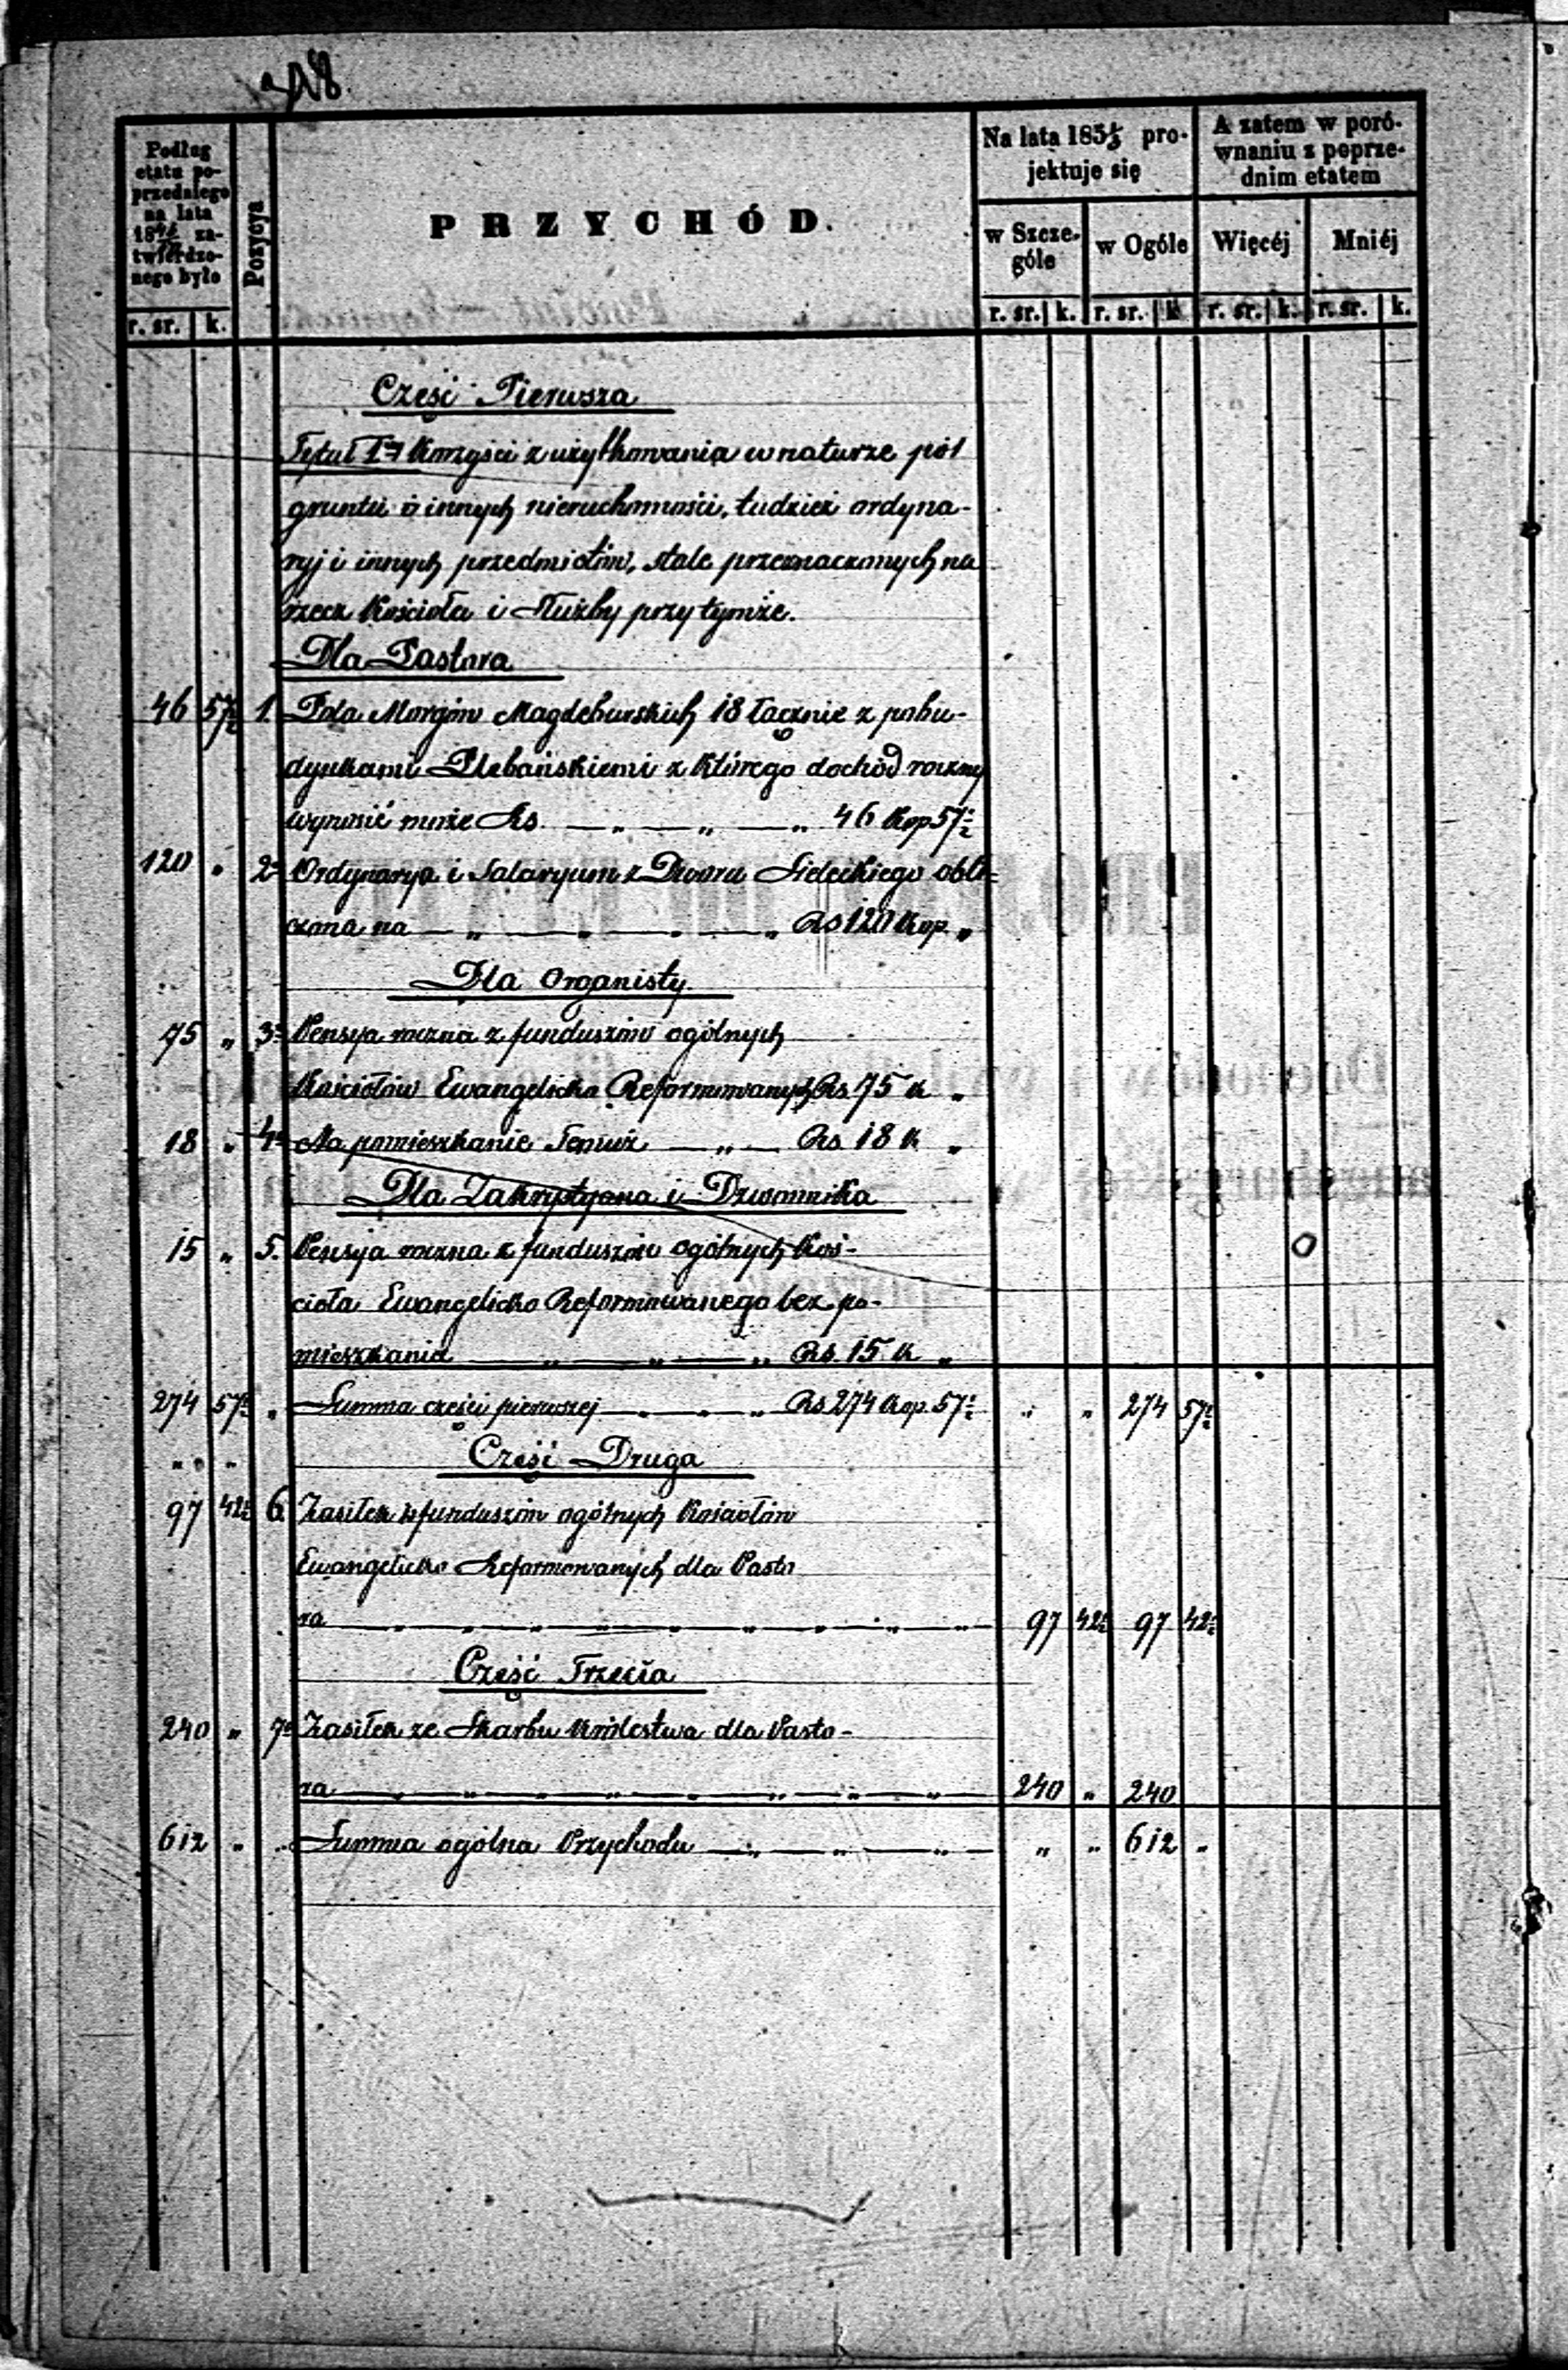 Podług etatu poprzedniego na lata 18 zatwierdzonego było
r. sr. | k.
Pozycya
PRZYCHÓD.
Na lata 185 projektuje się
w Szczególe
w Ogóle
r. sr. | k. r. sr. | k
A zatem w porównaniu z poprzednim etatem
Więcéj
Mniéj
r. sr. | k. r. sr. | k.
Część Pierwsza
Tytuł I Korzyści z użytkowania w naturze pól
gruntu i innych nieruchomości, tudzież ordyna-
ryj i innych przedmiotów, stale przeznaczonych na
rzecz Kościoła i Służby przy tymże.
Dla Pastora
46 57½ 1. Pola Morgów Magdeburskich 18 łącznie z pobu-
dynkami Plebańskiemi z którego dochód roczny
wynosić może Rs. — „ — „ — „ 46 Kop 57½
120 „ 2 Ordynarya i Salaryum z Dworu Sieleckiego obli-
czona na — „ — „ — „ — „ Rs 120 Kop „
Dla Organisty
75 „ 3 Pensya roczna z funduszów ogólnych
Kościołów Ewangelicko Reformowanych Rs. 75 k „
18 „ 4 Na pomieszkanie Temuż — „ — Rs. 18 k „
Dla Zakrystyana i Dzwonnika
15 „ 5. Pensja roczna z funduszów ogólnych Koś-
cioła Ewangelicko Reformowanego bez po-
mieszkania — „ — „ — „ Rs. 15 k „
274 57½ „ Summa części pierwszej — „ — „ — „ Rs 274 Kop. 57½ „ „ 274 57½
„ „ „ Część Druga
97 42½ 6 Zasiłek z funduszów ogólnych Kościołów
Ewangelicko Reformowanych dla Pasto
ra — „ — „ — „ — „ — „ — „ — „ — „ — 97 42½ 97 42½
Część Trzecia
240 „ 7 Zasiłek ze Skarbu Królestwa dla Pasto-
ra — „ — „ — „ — „ — „ — „ — „ — „ — 240 „ 240
612 „ „ Summa ogólna Przychodu — „ — „ — „ — „ „ 612 „